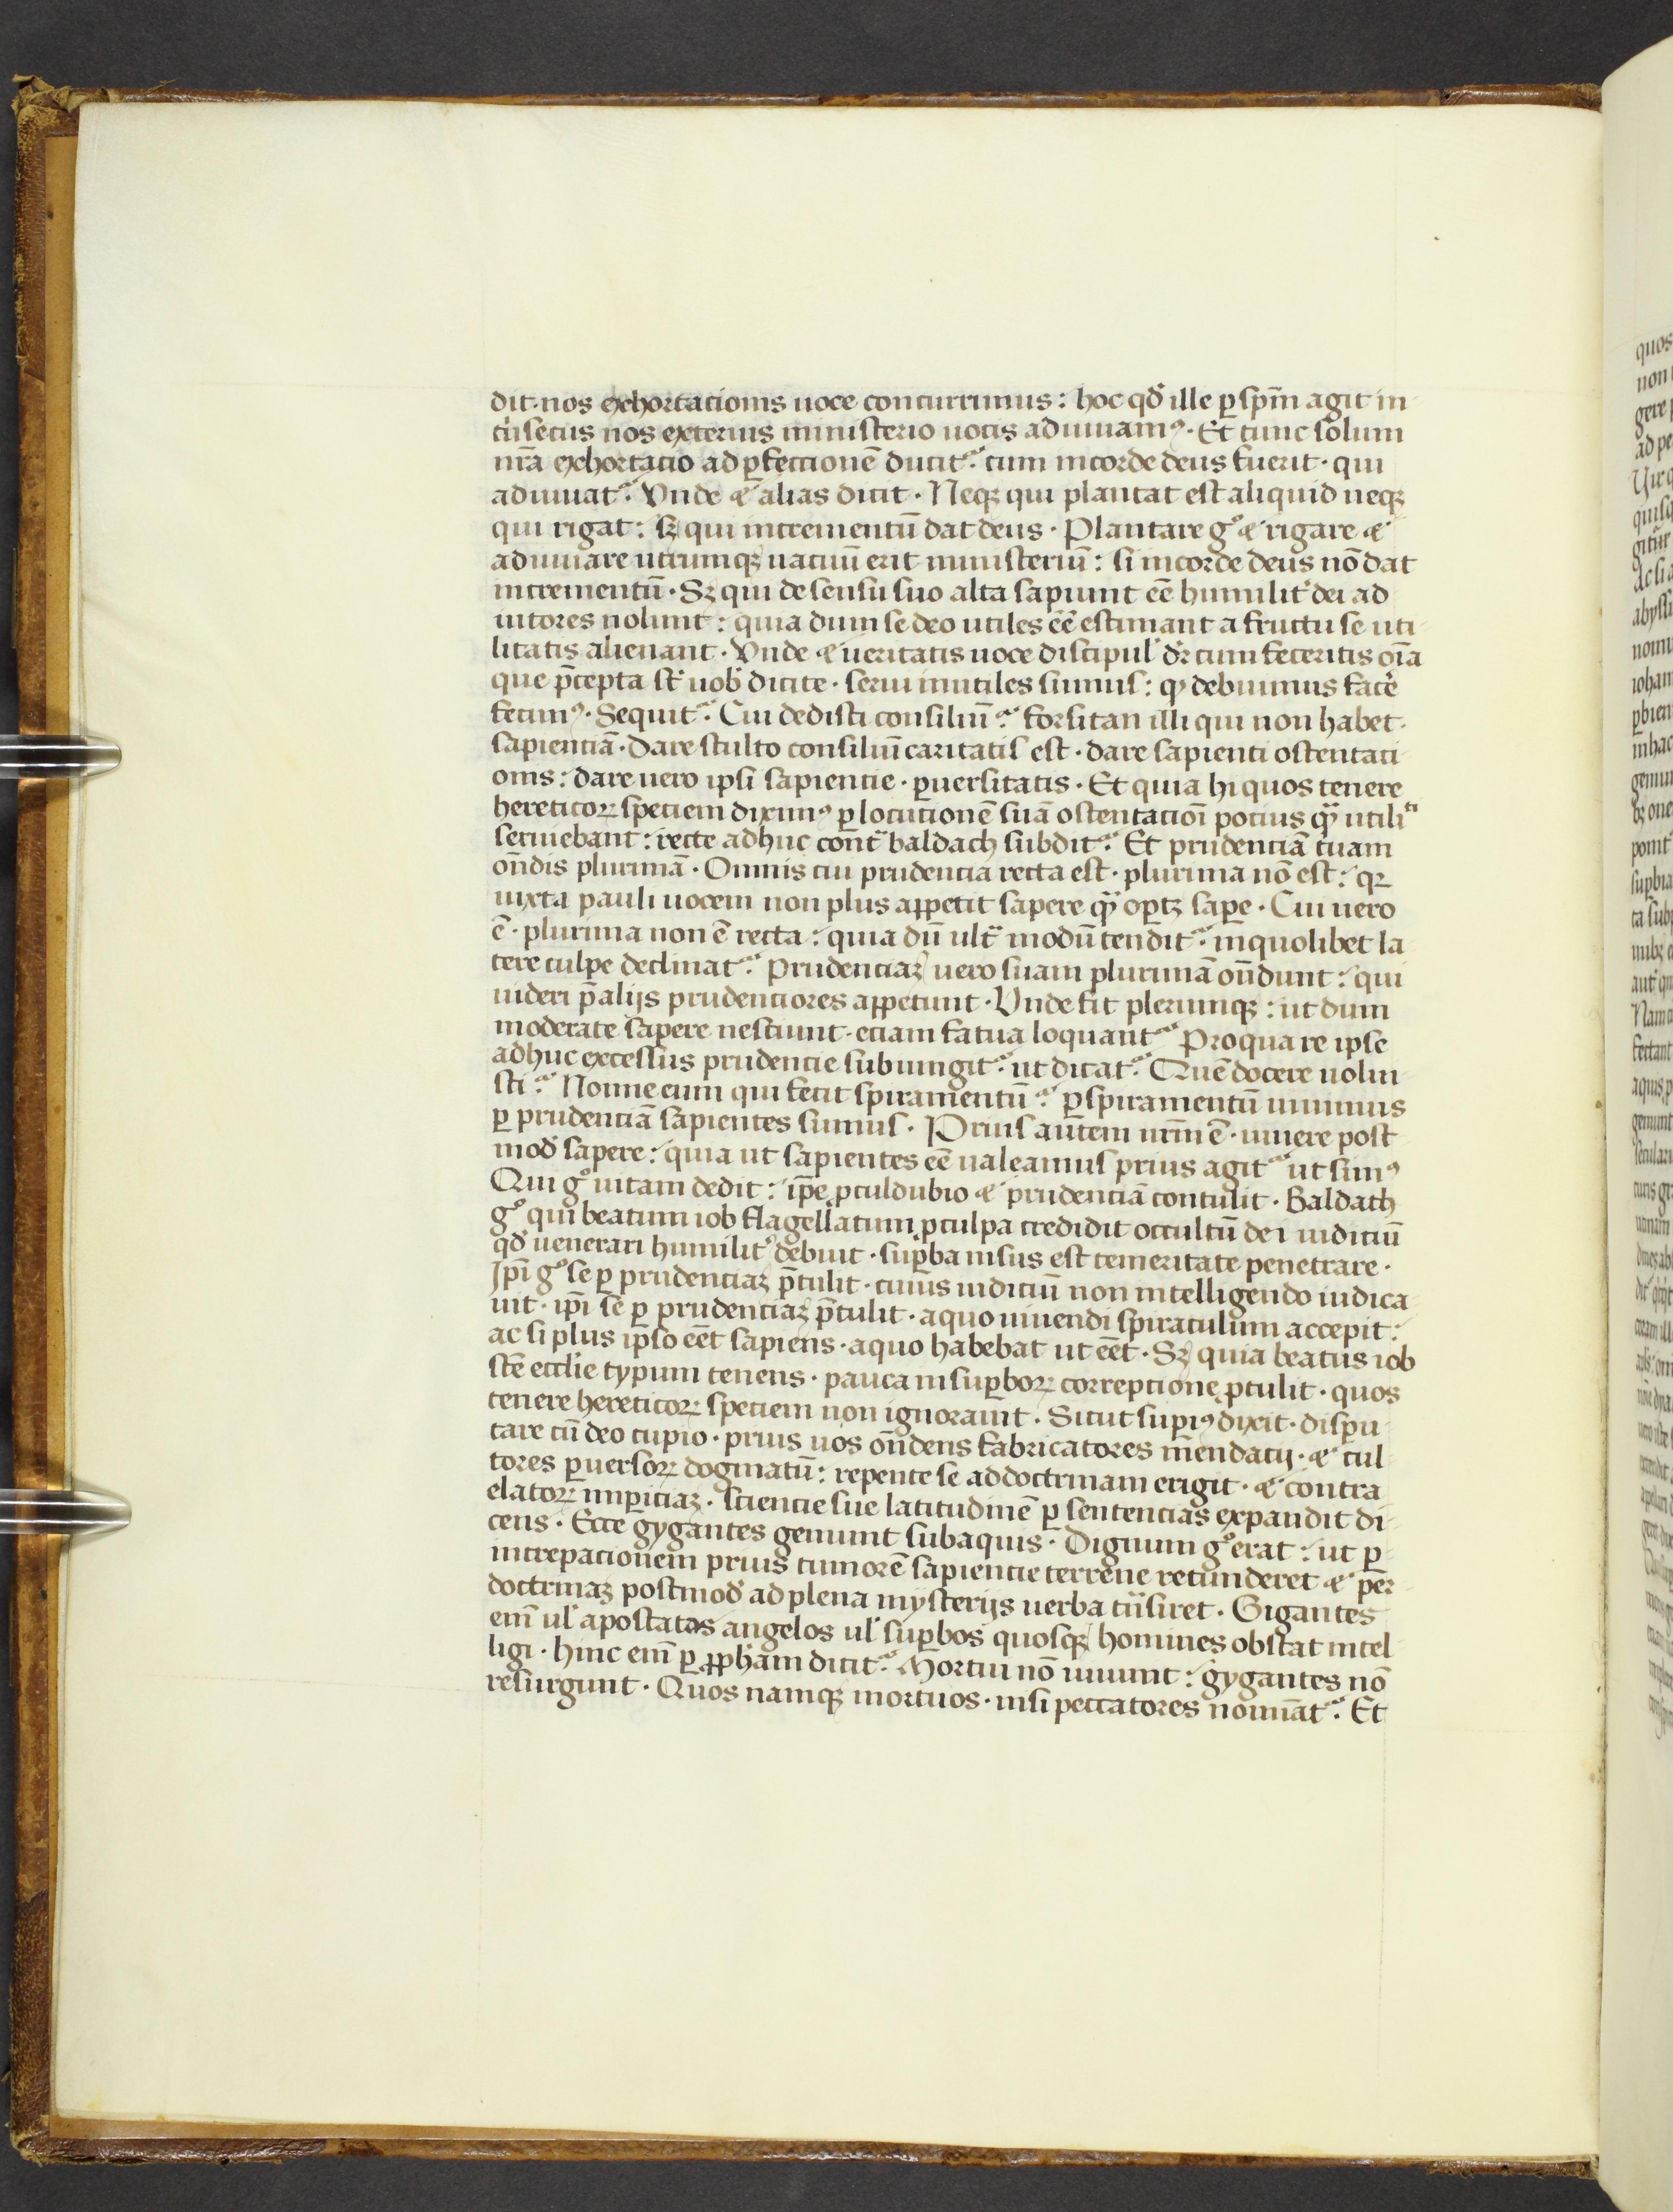 dit· nos exhortacionis uoce concurrimus: hoc qđ ille ꝑ sp̄m agit in
trı̓secus nos exterius ministerio uocis adiuuamꝰ· Et tunc solum
nr̄a exhortacio ad ꝑfectionē ducit᷒· cum in corde deus fuerit· qui
adiuuat᷒· Vnde ⁊ alias dicit· Neqꝫ qui plantat est aliquid neqꝫ
qui rigat: sꝫ qui incrementū dat deus· Plantare gͦ ⁊ rigare ⁊
adiuuare utrumqꝫ uacuū erit ministeriū: si in corde deus nō dat
incrementū· Sꝫ qui de sensu suo alta sapiunt eē humilit̓ dei ad
iutores nolunt: quia dum se deo utiles eē estimant a fructu se uti
litatis alienant· Vnde ⁊ ueritatis uoce discipul̓ dr̄ cum feceritis oı̄a
que p̄cepta st̄ uob̓ dicite· serui inutiles sumus: ꝙ debuimus facē
fecimꝰ· Sequit᷒· Cui dedisti consiliū᷒· forsitan illi qui non habet·
sapienciā· Dare stulto consiliū caritatis est· dare sapienti ostentati
onis: dare uero ipsi sapiencie· ꝑuersitatis· Et quia hi quos tenere
hereticoꝝ speciem diximꝰ ꝑ locutionē suā ostentacioı̄ pocius qͣꝫ utilit̓
seruiebant: recte adhuc contͣ baldach subdit᷒· Et prudenciā tuam
on̄dis plurimā· Omnis cui prudencia recta est· plurima nō est: qꝛ
iuxta pauli uocem non plus appetit sapere qͣꝫ oꝑtꝫ saꝑe· Cui uero
ē· plurima non ē recta: quia dū ultͣ modū tendit᷒· in quolibet la
tere culpe declinat᷒· Prudenciaꝫ uero suam plurimā on̄dunt: qui
uideri p̄ alijs prudenciores appetunt· Vnde fit plerumqꝫ: ut dum
moderate sapere nesciunt· eciam fatua loquant᷒· Pro qua re ipse
adhuc excessus prudencie subiungit᷒· ut dicat᷒· Quē docere uolui
sti᷒· Nonne eum qui fecit spiramentū᷒· ꝑ spiramentū uiuimus
ꝑ prudenciā sapientes sumus· Prius autem nrm̄ ē· uiuere post
mod̓ sapere: quia ut sapientes eē ualeamus prius agit᷒ ut simꝰ
Qui gͦ uitam dedit: ip̄e ꝓculdubio ⁊ prudenciā contulit· Baldach
gͦ qui beatum iob flagellatum ꝓ culpa credidit occultū dei iudiciū
qđ uenerari humilit̓ debuit· suꝑba nisus est temeritate penetrare·
Ip̄i gͦ se ꝑ prudenciaꝫ p̄tulit· cuius iudiciū non intelligendo iudica
uit· ip̄i se ꝑ prudenciaꝫ p̄tulit· a quo uiuendi spiraculum accepit:
ac si plus ip̄so eēt sapiens· a quo habebat ut eēt· Sꝫ quia beatus iob
stē eccl̓ie typum tenens· pauca in suꝑboꝝ correptionē ꝓtulit· quos
tenere hereticoꝝ speciem non ignorauit· Sicut supiꝰ dixit· dispu
tare cū deo cupio· prius uos on̄dens fabricatores mendacij· ⁊ cul
tores ꝑuersoꝝ dogmatū: repente se ad doctrinam erigit· ⁊ contra
elatoꝝ imꝑiciaꝫ· sciencie sue latitudinē ꝑ sentencias expandit di
cens· Ecce gygantes gemunt sub aquis· Dignum gͦ erat: ut ꝑ
increpacionem prius tumorē sapiencie terrene retunderet ⁊ per
doctrinaꝫ postmod̓ ad plena mysterijs uerba tn̄siret· Gigantes
em̄ ul̓ apostatas angelos ul̓ suꝑbos quosqꝫ homines obstat intel
ligi· hinc em̄ ꝑ ꝓpham̄ dicit᷒· Mortui nō uiuunt: gygantes nō
resurgunt· Quos namqꝫ mortuos· nisi peccatores nominat᷒· Et